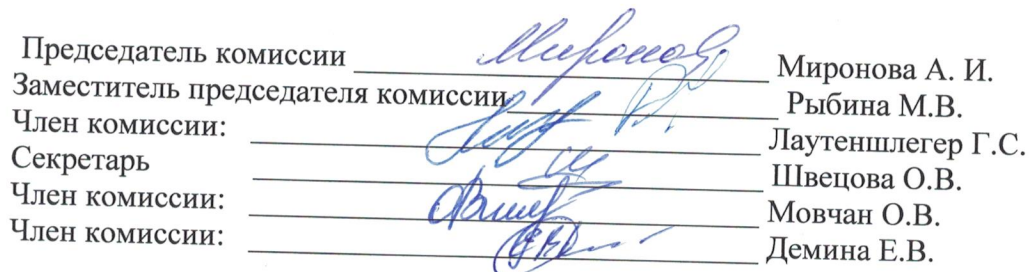 Председатель комиссии Миронова А. И.
Заместитель председателя комиссии Рыбина М.В.
Член комиссии: Лаутеншлегер Г.С.
Секретарь Швецова О.В.
Член комиссии: Мовчан О.В.
Член комиссии: Демина Е.В.